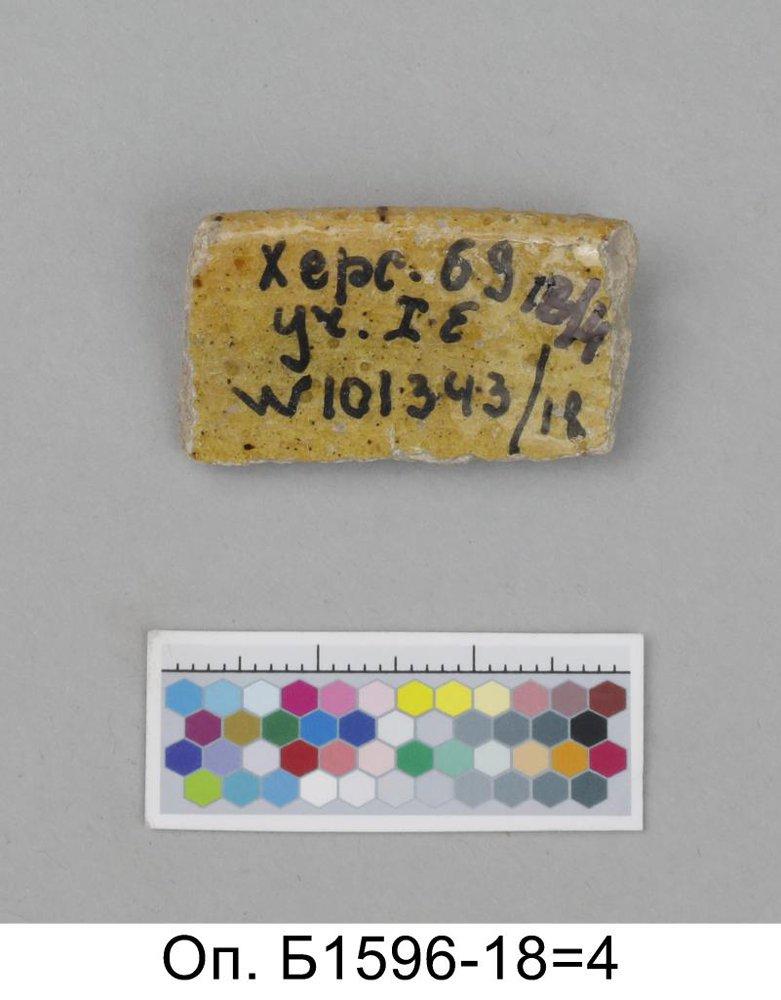 Херс. 69
уч. I Е
W101343/18
Оп. Б1596-18=4